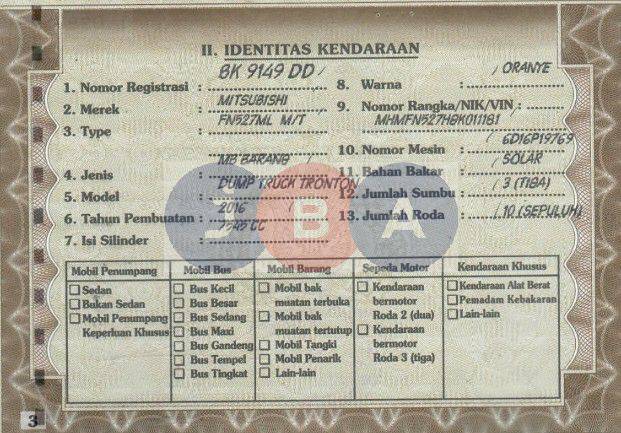 II. IDENTITAS KENDARAAN
1. Nomor Registrasi : BK 9149 DD
2. Merek : MITSUBISHI
3. Type : FN527ML M/T
4. Jenis : MB BARANG
5. Model : DUMP TRUCK TRONTON
6. Tahun Pembuatan : 2016
7. Isi Silinder : 7545 CC
8. Warna : ORANYE
9. Nomor Rangka/NIK/VIN : MHMFN527HGK011181
10. Nomor Mesin : 6D16P19769
11. Bahan Bakar : SOLAR
12. Jumlah Sumbu : 3 (TIGA)
13. Jumlah Roda : 10 (SEPULUH)
Mobil Penumpang
Sedan
Bukan Sedan
Mobil Penumpang
Keperluan Khusus
Mobil Bus
Bus Kecil
Bus Besar
Bus Sedang
Bus Maxi
Bus Gandeng
Bus Tempel
Bus Tingkat
Mobil Barang
Mobil bak
muatan terbuka
Mobil bak
muatan tertutup
Mobil Tangki
Mobil Penarik
Lain-lain
Sepeda Motor
Kendaraan
bermotor
Roda 2 (dua)
Kendaraan
bermotor
Roda 3 (tiga)
Kendaraan Khusus
Kendaraan Alat Berat
Pemadam Kebakaran
Lain-lain
BA
3